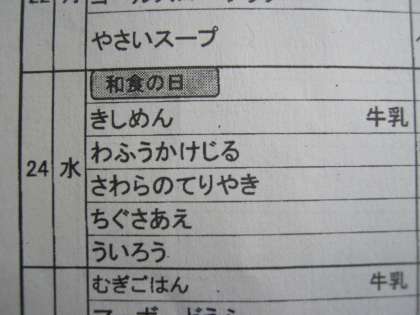 やさいスープ
和食の日
きしめん 牛乳
わふうかけじる
24 水 さわらのてりやき
ちぐさあえ
ういろう
むぎごはん 牛乳